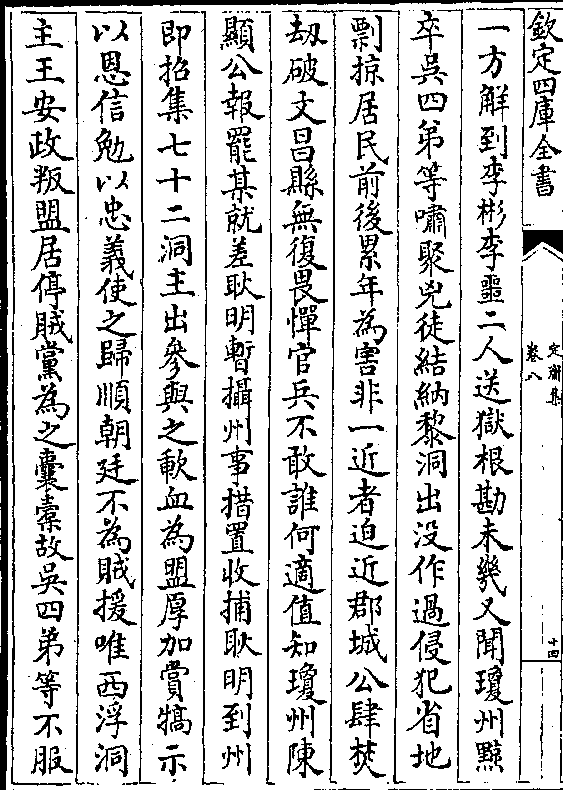 欽定四庫全書
定齋集
卷八
十四
一方解到李彬李噩二人送獄根勘未幾又聞瓊州黥
卒吳四弟等嘯聚兇徒結納黎洞出没作過侵犯省地
剽掠居民前後累年為害非一近者迫近郡城公肆焚
劫破文昌縣無復畏憚官兵不敢誰何適值知瓊州陳
顯公報罷某就差耿明暫攝州事措置收捕耿明到州
即招集七十二洞主出參與之歃血為盟厚加賞犒示
以恩信勉以忠義使之歸順朝廷不為賊援唯西浮洞
主王安政叛盟居停賊黨為之囊橐故吳四弟等不服